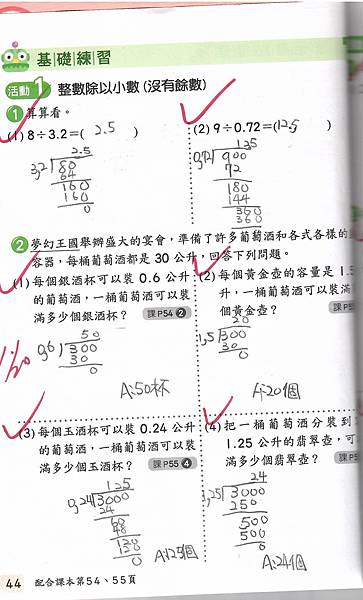 基礎練習
活動1 整數除以小數(沒有餘數)
1 算算看。
(1) 8÷3.2=( 2.5 )
2.5
3.2 80
64
160
160
0
(2) 9÷0.72=( 12.5 )
125
0.72 900
72
180
144
360
360
0
2 夢幻王國舉辦盛大的宴會,準備了許多葡萄酒和各式各樣的
容器,每桶葡萄酒都是 30 公升,回答下列問題。
(1) 每個銀酒杯可以裝 0.6 公升
的葡萄酒,一桶葡萄酒可以裝
滿多少個銀酒杯?
課P54 2
50
0.6 300
30
0
A:50杯
(2) 每個黃金壺的容量是 1.5
升,一桶葡萄酒可以裝滿
個黃金壺?
課P55
20
1.5 300
30
0
A:20個
1/20
(3) 每個玉酒杯可以裝 0.24 公升
的葡萄酒,一桶葡萄酒可以裝
滿多少個玉酒杯?
課P55 4
125
0.24 3000
24
60
48
120
0
A:125個
(4) 把一桶葡萄酒分裝到
1.25 公升的翡翠壺,可
滿多少個翡翠壺?
課P55
24
1.25 3000
250
500
500
0
A:24個
44 配合課本第54、55頁